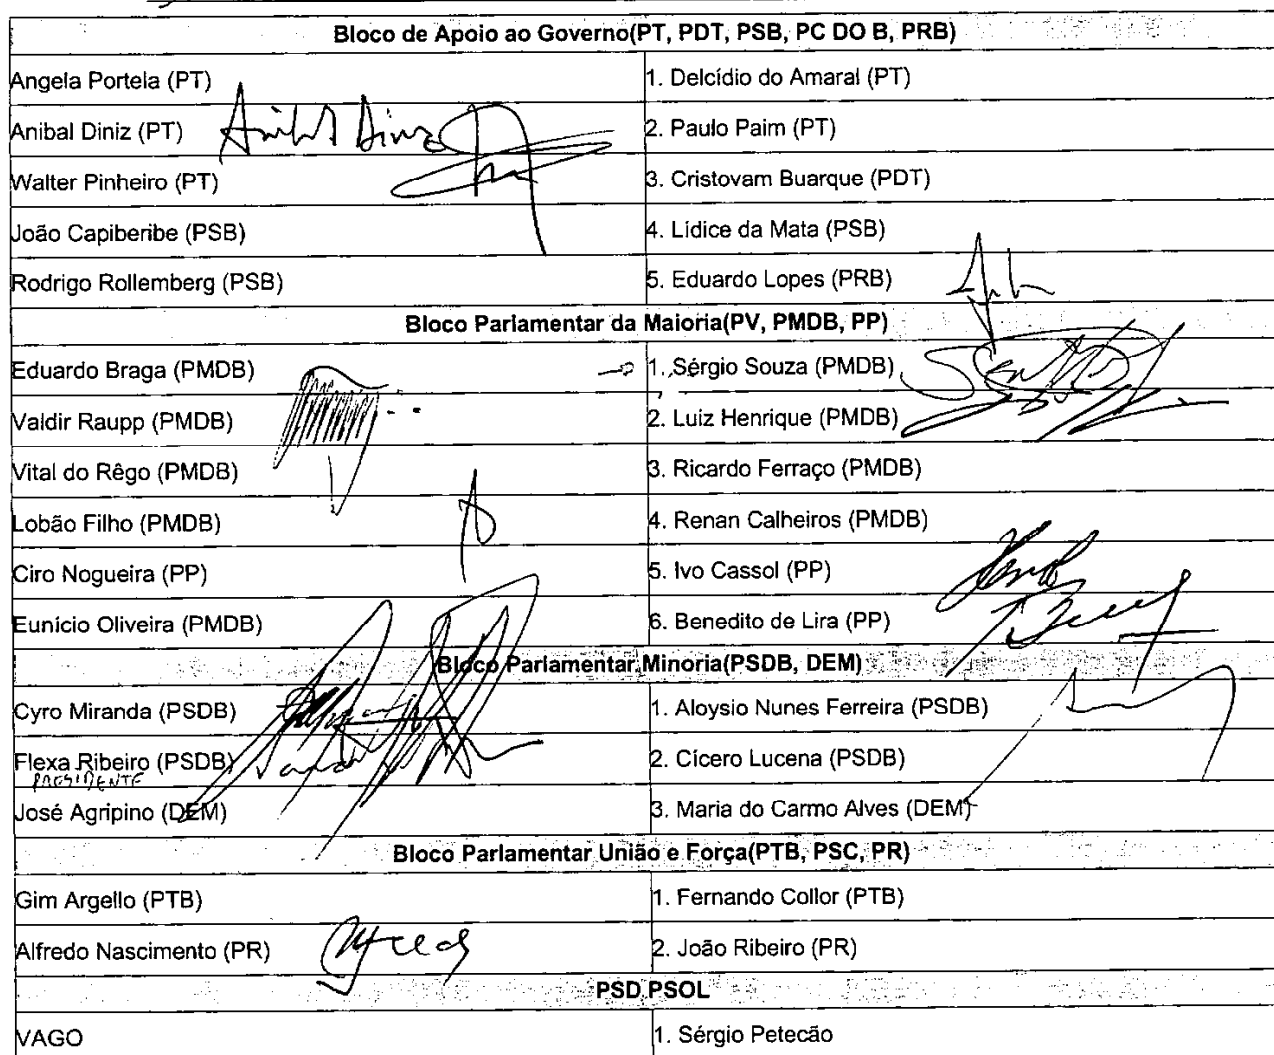 Bloco de Apoio ao Governo(PT, PDT, PSB, PC DO B, PRB)
Angela Portela (PT) 1. Delcídio do Amaral (PT)
Anibal Diniz (PT) Anibal Diniz 2. Paulo Paim (PT)
Walter Pinheiro (PT) 3. Cristovam Buarque (PDT)
João Capiberibe (PSB) 4. Lídice da Mata (PSB)
Rodrigo Rollemberg (PSB) 5. Eduardo Lopes (PRB)
Bloco Parlamentar da Maioria(PV, PMDB, PP)
Eduardo Braga (PMDB) 1. Sérgio Souza (PMDB)
Valdir Raupp (PMDB) 2. Luiz Henrique (PMDB)
Vital do Rêgo (PMDB) 3. Ricardo Ferraço (PMDB)
Lobão Filho (PMDB) 4. Renan Calheiros (PMDB)
Ciro Nogueira (PP) 5. Ivo Cassol (PP)
Eunício Oliveira (PMDB) 6. Benedito de Lira (PP)
Bloco Parlamentar Minoria(PSDB, DEM)
Cyro Miranda (PSDB) 1. Aloysio Nunes Ferreira (PSDB)
Flexa Ribeiro (PSDB) 2. Cícero Lucena (PSDB)
PRESIDENTE
José Agripino (DEM) 3. Maria do Carmo Alves (DEM)
Bloco Parlamentar União e Força(PTB, PSC, PR)
Gim Argello (PTB) 1. Fernando Collor (PTB)
Alfredo Nascimento (PR) 2. João Ribeiro (PR)
PSD PSOL
VAGO 1. Sérgio Petecão